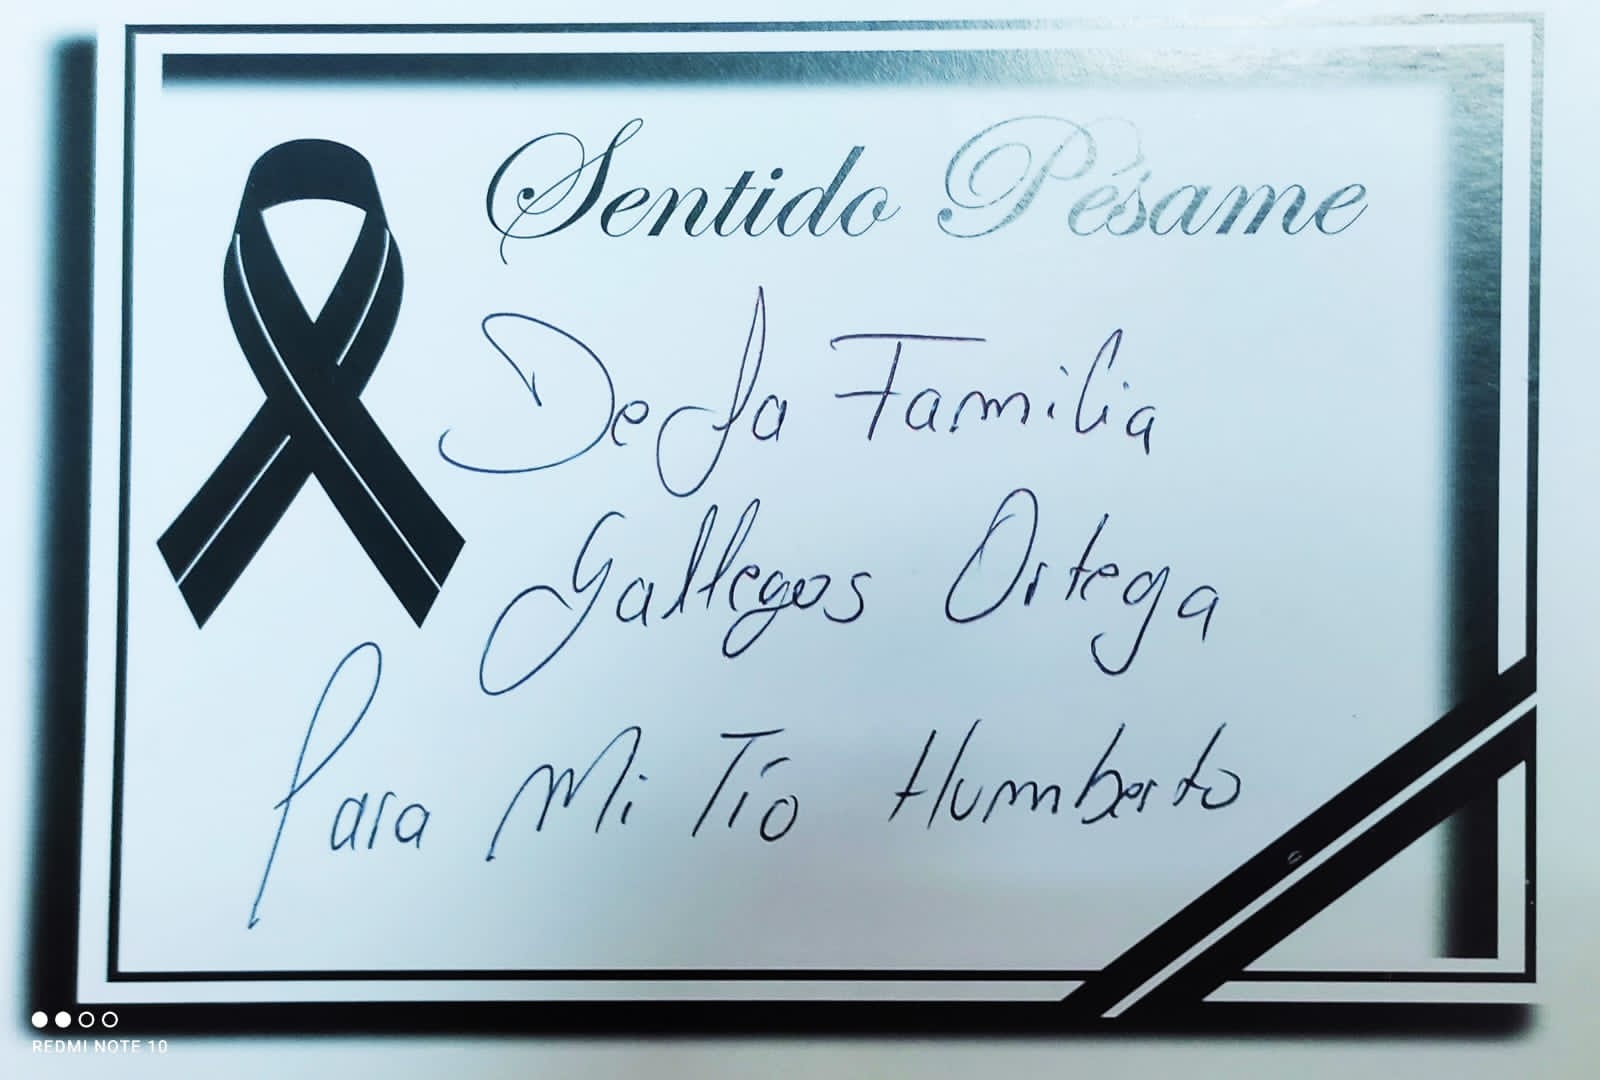 Sentido Pésame
De la Familia
Gallegos Ortega
Para Mi Tío Humberto
REDMI NOTE 10